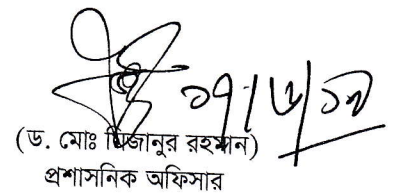 ১৭/৬/১৯
(ড. মোঃ মিজানুর রহমান)
প্রশাসনিক অফিসার